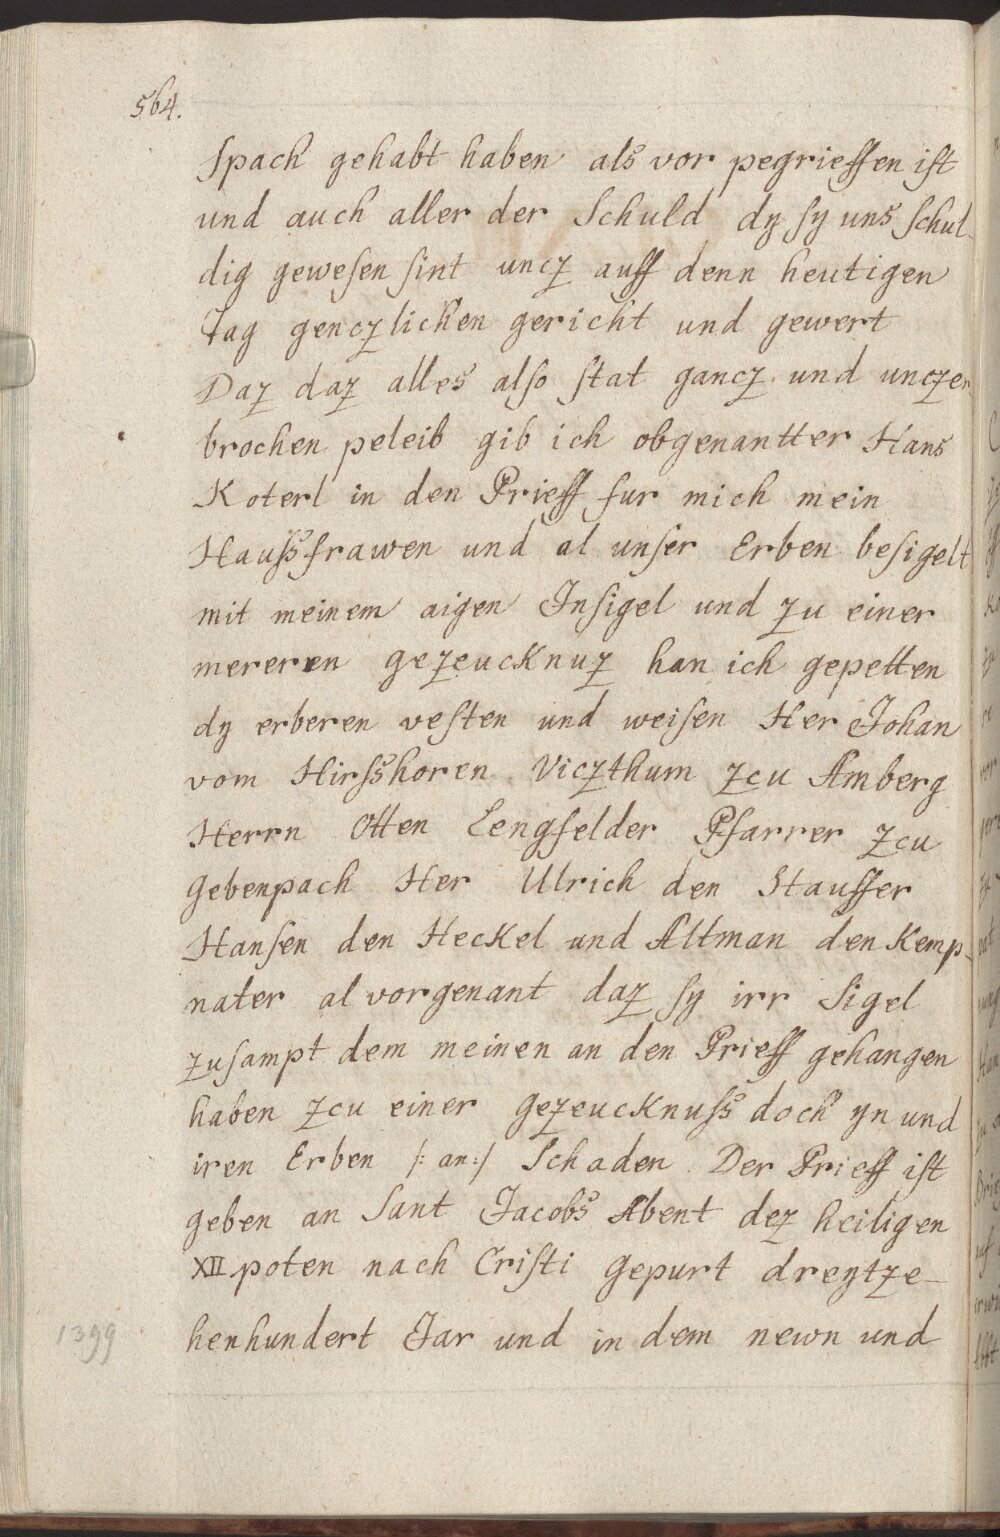 564.
Spach gehabt haben als vor pegrieffen ist
und auch aller der Schuld dy sy uns schul-
dig gewesen sint uncz auff denn heutigen
Tag genczlichen gericht und gewert
Daz daz alles also stat gancz und unczer
brochen peleib gib ich obgenantter Hans
Koterl in den Prieff fur mich mein
Haussfrawen und al unser Erben besigelt
mit meinem aigen Insigel und zu einer
mereren gezeucknuz han ich gepetten
dy erberen vesten und weisen Her Johan
vom Hirsshoren Viczthum zcu Amberg
Herrn Otten Lengfelder Pfarrer zcu
Gebenpach Her Ulrich den Stauffer
Hansen den Heckel und Altman den Kemp-
nater al vorgenant daz sy irr Sigel
zusampt dem meinen an den Prieff gehangen
haben zcu einer gezeucknuss doch yn und
iren Erben /: an :/ Schaden Der Prieff ist
geben an Sant Jacobs Abent dez heiligen
XII poten nach Cristi gepurt dreytze-
henhundert Jar und in dem newn und
1399